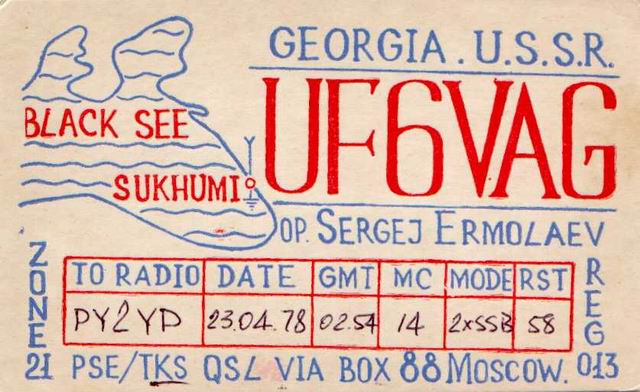 GEORGIA. U.S.S.R.
BLACK SEE
UF6VAG
SUKHUMI
OP. SERGEJ ERMOLAEV
ZONE 21
TO RADIO DATE GMT MC MODE RST
PY2YD 23.04.78 02.54 14 2xSSB 58
REG 013
PSE/TKS QSL VIA BOX 88 MOSCOW.